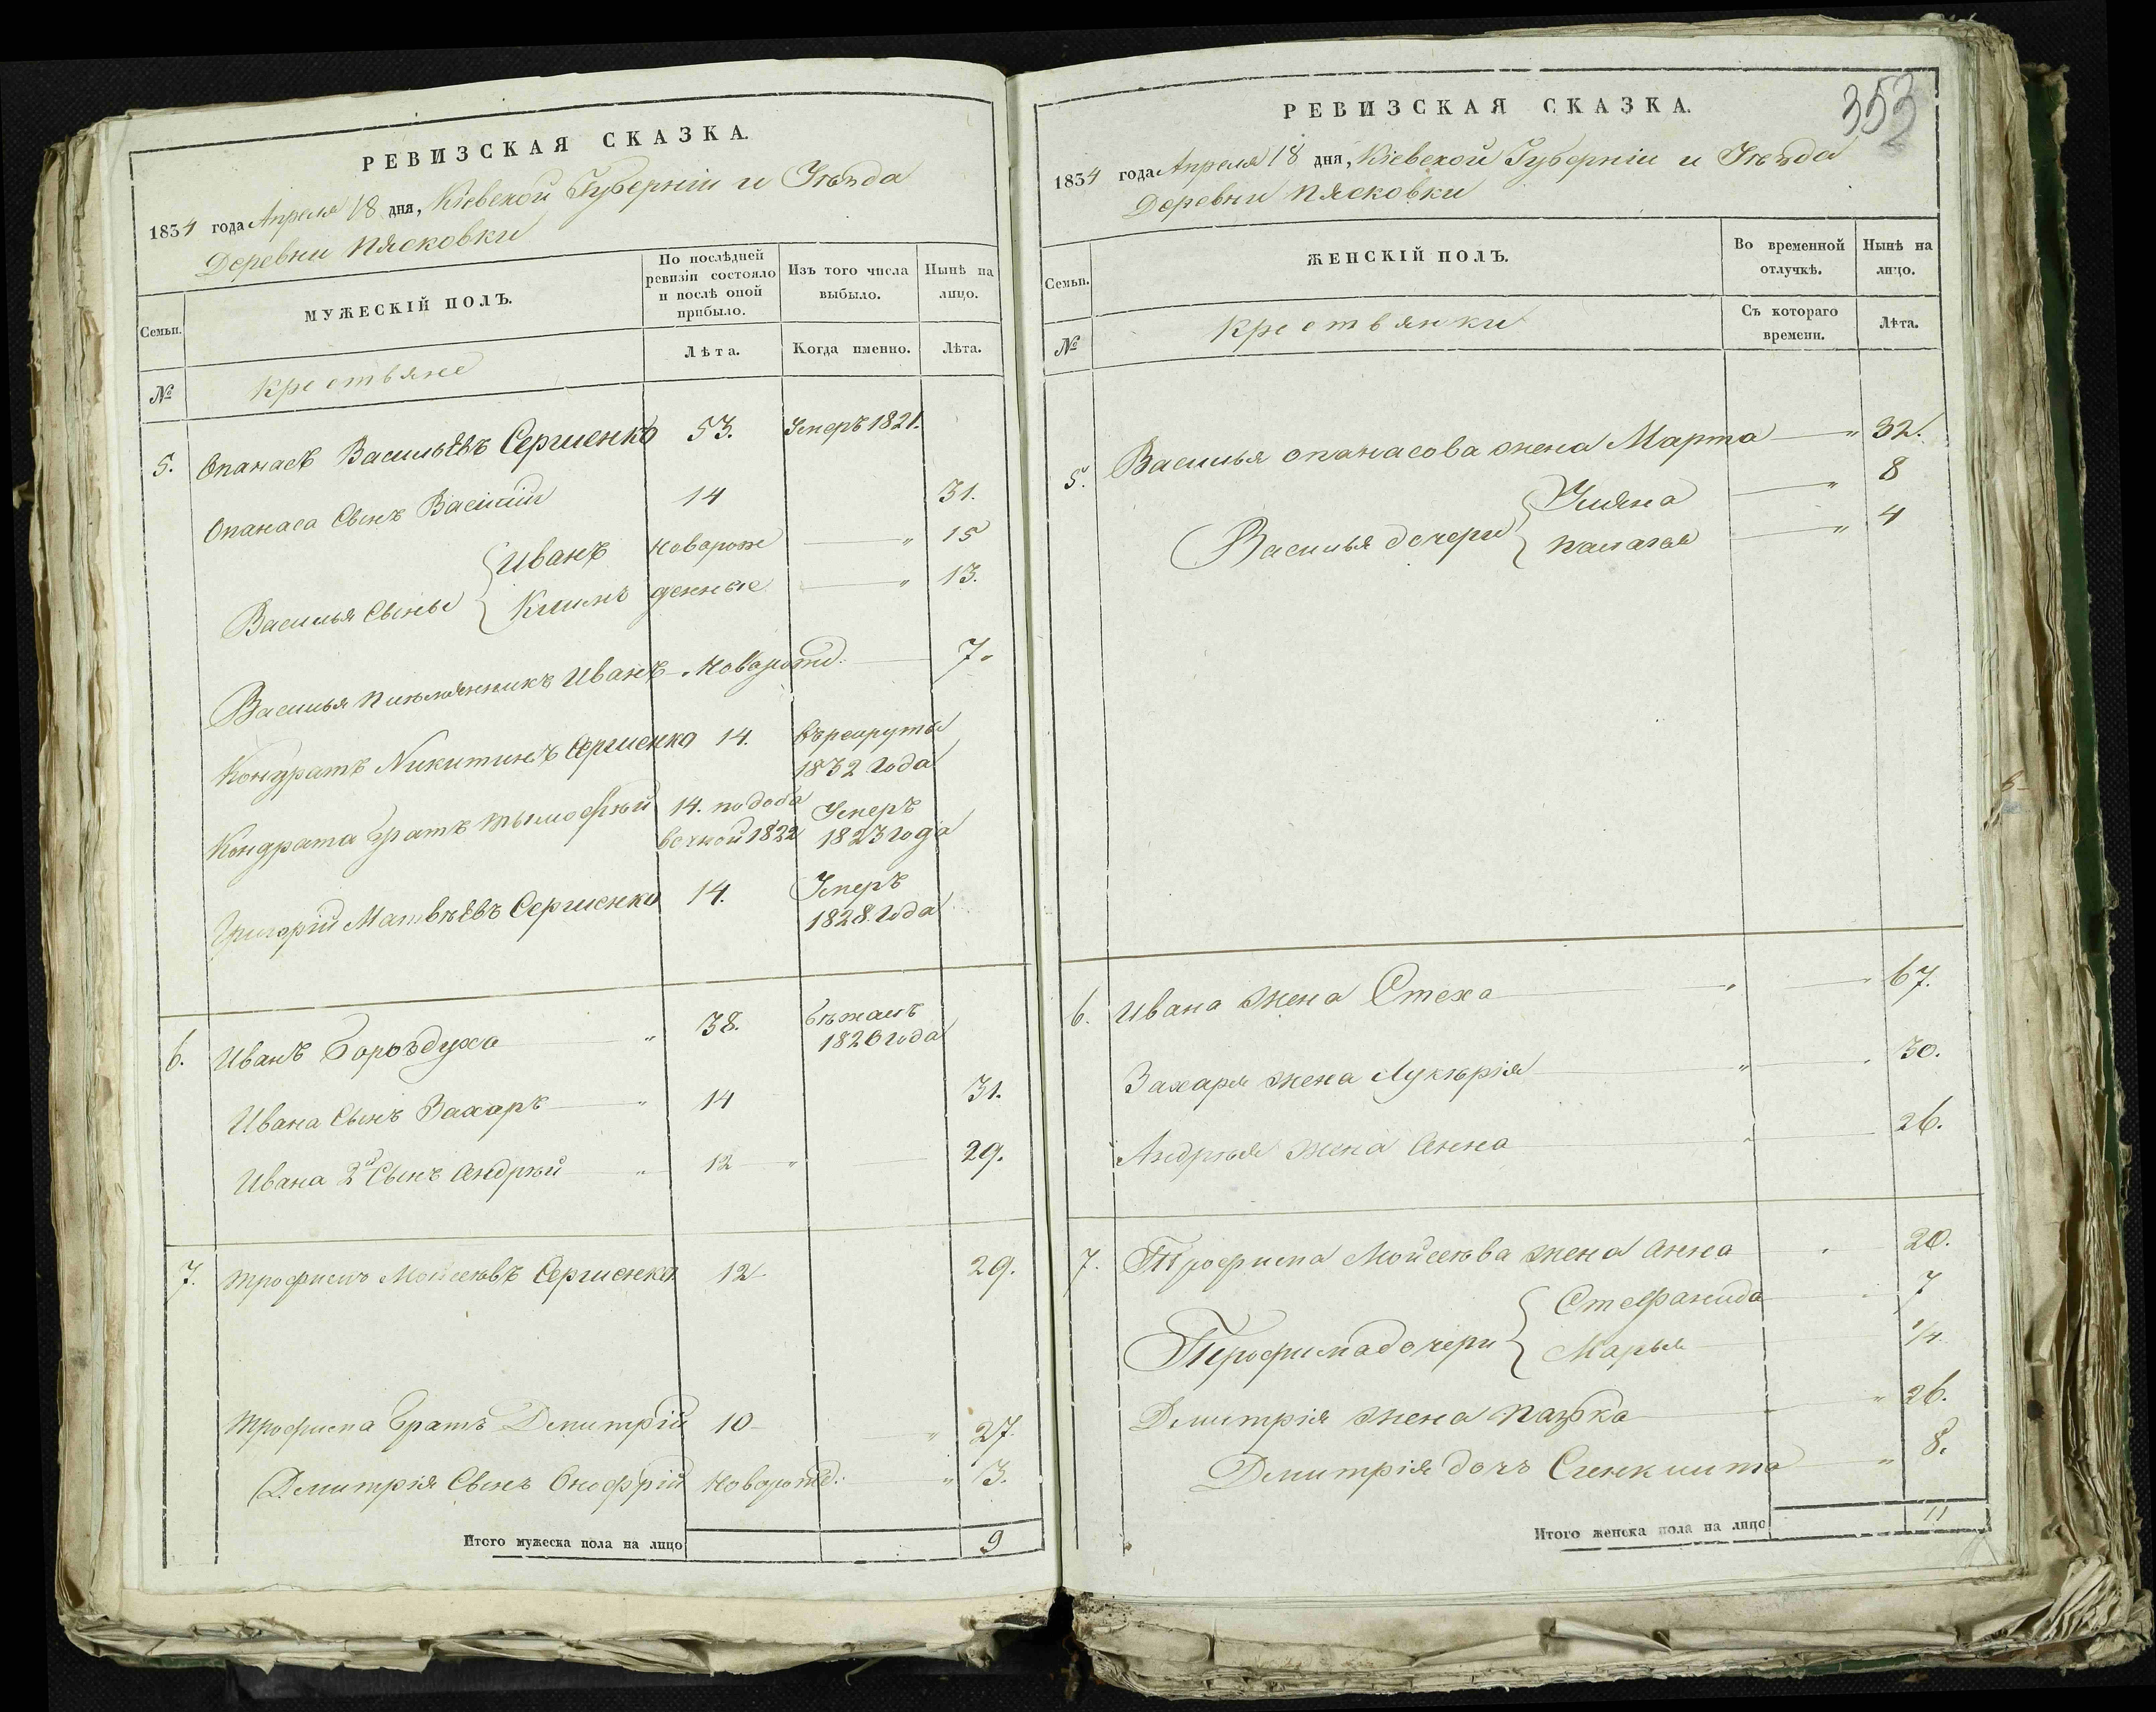 РЕВИЗСКАЯ СКАЗКА.
1834 года Апреля 18 дня, Кіевской Губерніи и Уѣзда
Деревни Пясковки
Семьи.
МУЖЕСКІЙ ПОЛЪ.
По послѣдней ревизіи состояло и послѣ оной прибыло.
Изъ того числа выбыло.
Нынѣ на лицо.
№
крестьяне
Лѣта.
Когда именно.
Лѣта.
5. Опанасъ Васильевъ Сергиенко 53. Умеръ 1821.
Опанаса Сынъ Василій 14 31.
Василья Сыны { Иванъ новорож 15
Климъ денные 13.
Василья Племянникъ Иванъ Новорожд. 7
Кондратъ Никитинъ Сергиенко 14. въ рекруты
1832 года
Кондрата братъ Тымофѣй 14. по доба Умеръ
вочной 1822 1823 года
Григорій Матвѣевъ Сергиенко 14. Умеръ
1828. года
6. Иванъ 38. бѣжалъ
1826 года
Ивана Сынъ Захаръ 14 31.
Ивана 2й Сынъ Андрѣй 12 29.
7. Трофимъ Мойсеѣвъ Сергиенко 12 29.
Трофима братъ Демитрій 10 27.
Демитрія Сынъ Онофрій Новорожд: 13.
Итого мужеска пола на лицо 9
353
РЕВИЗСКАЯ СКАЗКА.
1834 года Апреля 18 дня, Кіевской Губерніи и Уѣзда
Деревни Пясковки
Семьи.
ЖЕНСКІЙ ПОЛЪ.
Во временной отлучкѣ.
Нынѣ на лицо.
№
крестьянки
Съ котораго времени.
Лѣта.
5. Василья Опанасова жена Марта 32.
Василья дочери { Уляна 8
Палагея 4
6. Ивана жена Стеха 67.
Захаря жена Лукѣрія 30.
Андрѣя жена Анна 26.
7. Трофима Мойсеѣва жена Анна 20.
Трофима дочери { Стефанида 7
Марья 1/4
Демитрія жена Пазка 26.
Демитрія дочъ 8.
Итого женска пола на лицо 11